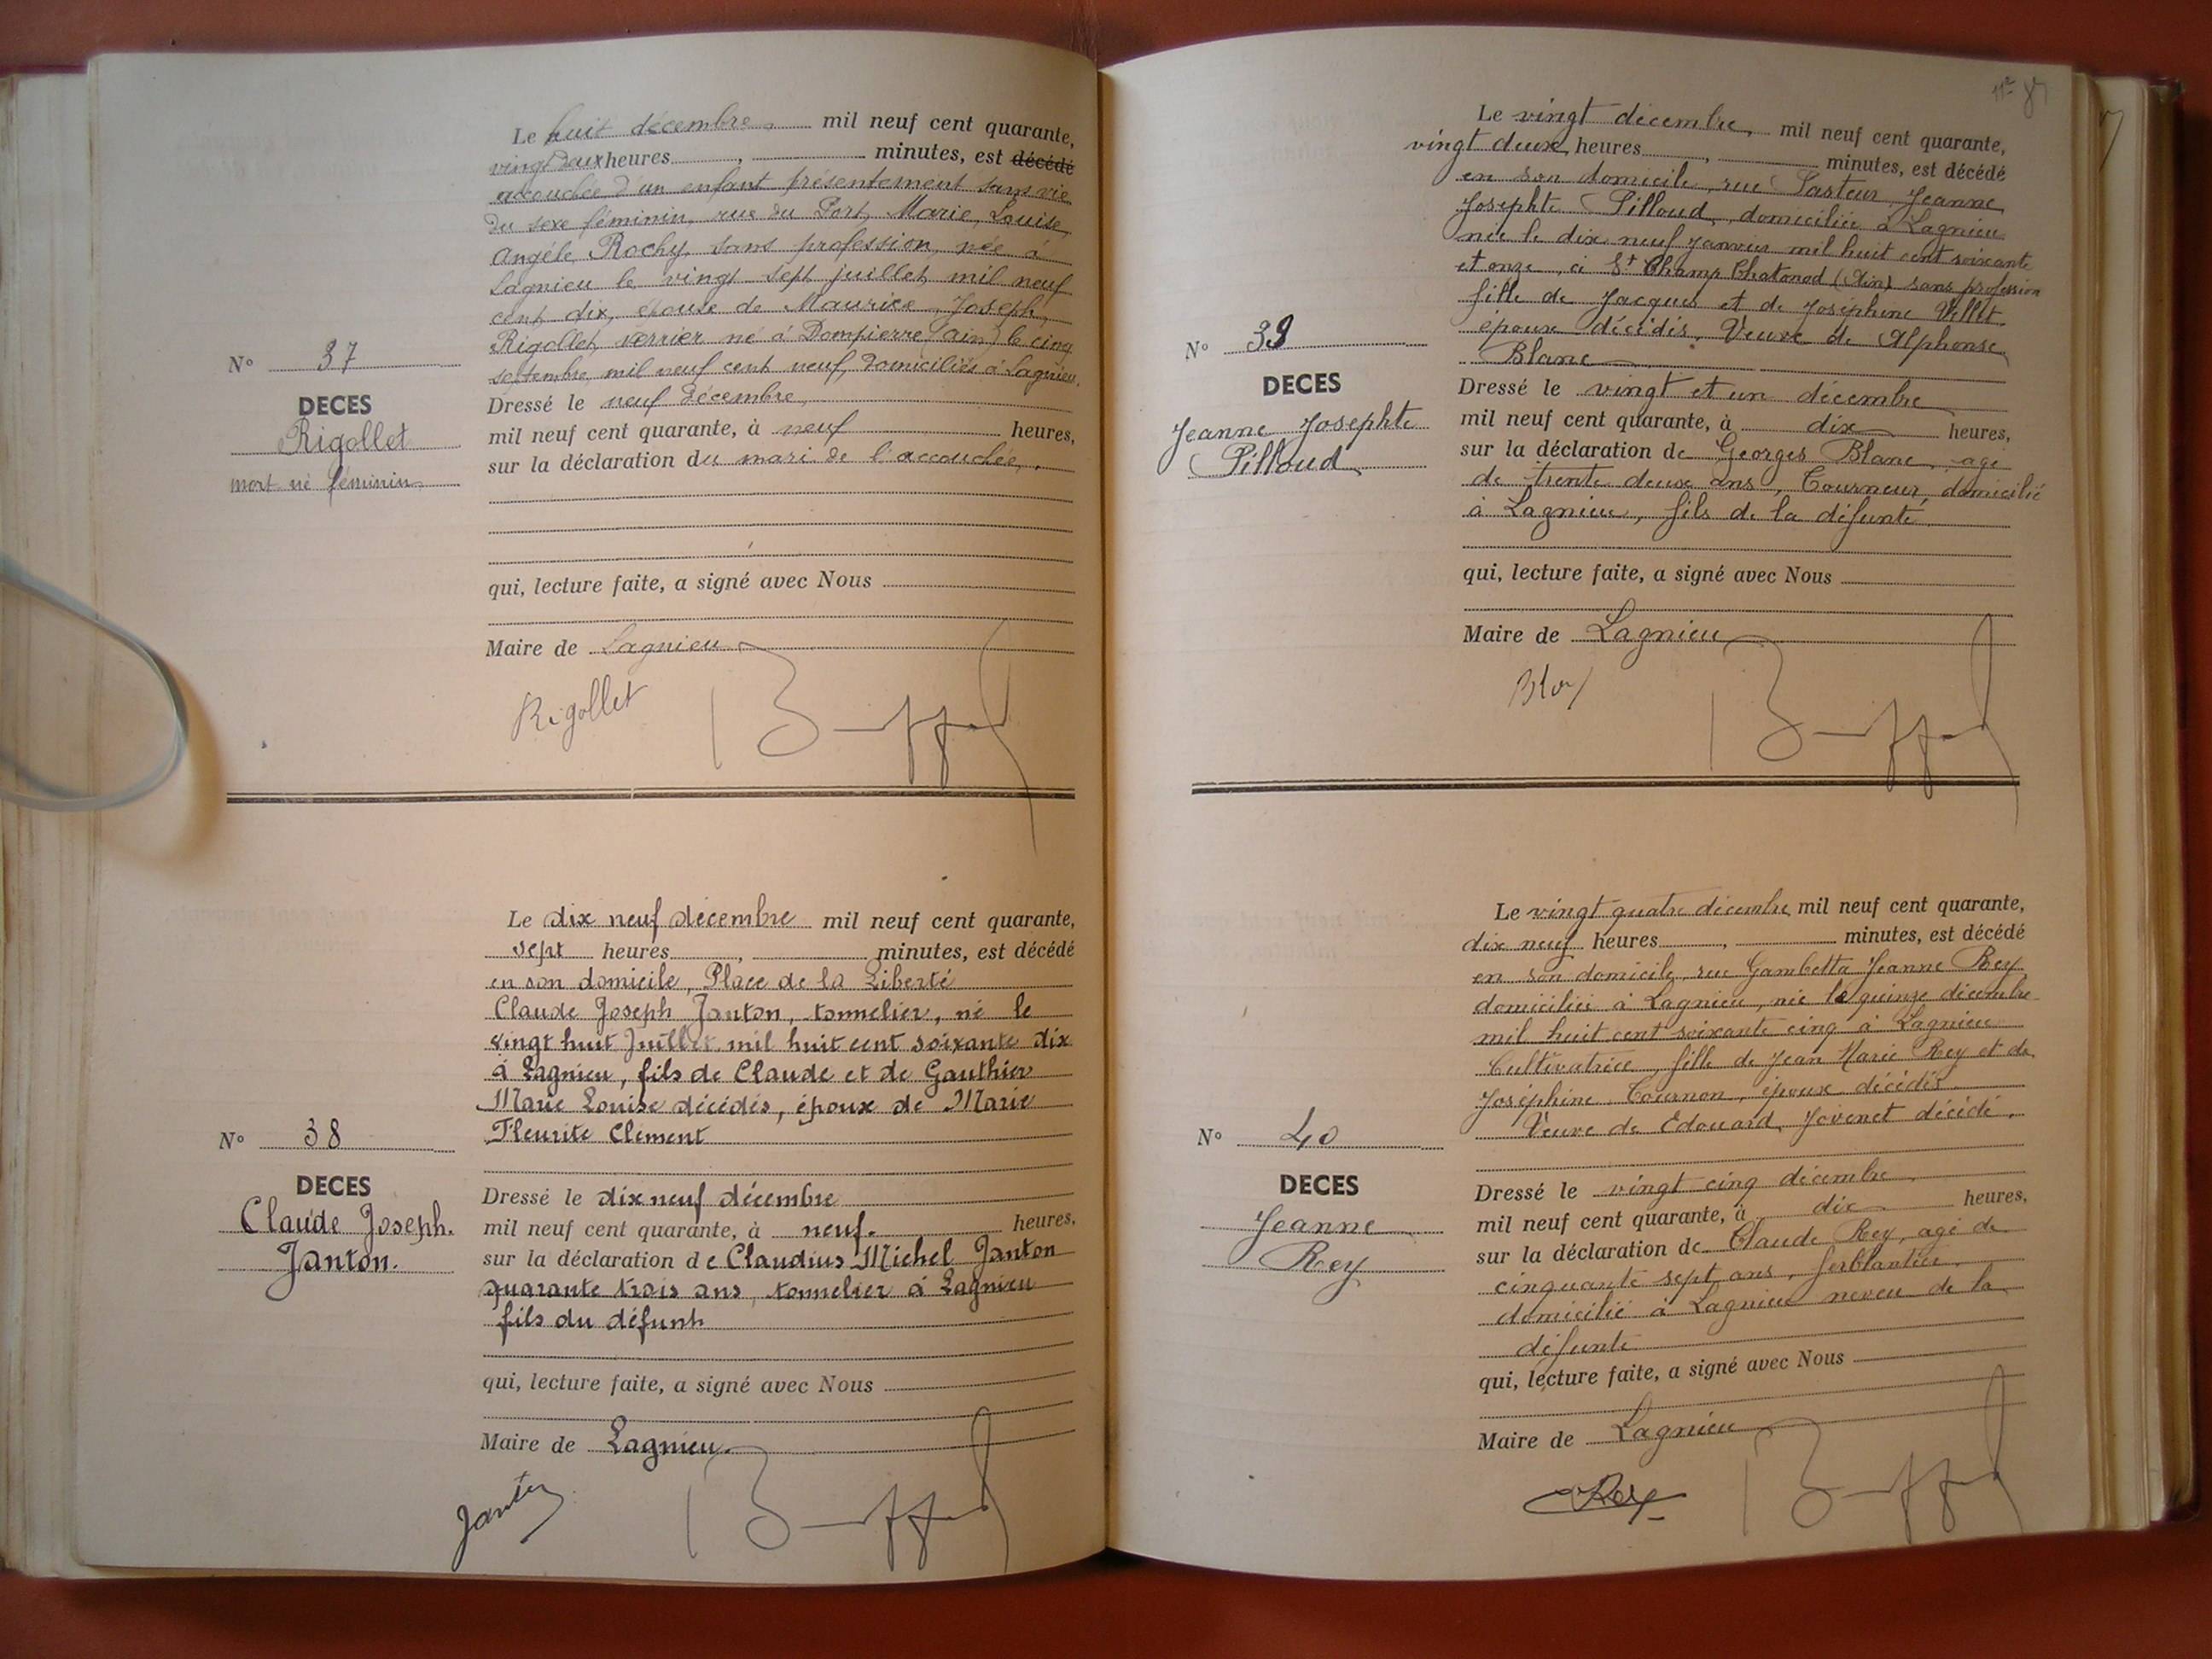 Le huit décembre mil neuf cent quarante,
vingt deux heures, minutes, est décédé
accouchée d'un enfant présentement sans vie
du sexe féminin, rue du Port, Marie, Louise,
Angèle Rochy, sans profession, née à
Lagnieu le vingt sept juillet mil neuf
cent dix, épouse de Maurice, Joseph,
Rigollet, verrier né à Dompierre (ain) le cinq
septembre mil neuf cent neuf, domiciliés à Lagnieu.
N° 37
DECES
Rigollet
mort né féminin
Dressé le neuf décembre
mil neuf cent quarante, à neuf heures,
sur la déclaration du mari de l'accouchée.
qui, lecture faite, a signé avec Nous
Maire de Lagnieu
Rigollet
Le dix neuf décembre mil neuf cent quarante,
sept heures, minutes, est décédé
en son domicile, Place de la Liberté
Claude Joseph Janton, tonnelier, né le
vingt huit Juillet mil huit cent soixante dix
à Lagnieu, fils de Claude et de Gauthier
Marie Louise décédés, époux de Marie
Fleurite Clément
N° 38
DECES
Claude Joseph.
Janton.
Dressé le dix neuf décembre
mil neuf cent quarante, à neuf. heures,
sur la déclaration de Claudius Michel Janton
quarante trois ans, tonnelier à Lagnieu
fils du défunt
qui, lecture faite, a signé avec Nous
Maire de Lagnieu.
Janton
87
Le vingt décembre mil neuf cent quarante,
vingt deux heures, minutes, est décédé
en son domicile, rue Pasteur, Jeanne
Josephte Pilloud, domiciliée à Lagnieu
née le dix neuf janvier mil huit cent soixante
et onze, à St Champ Chatonod (Ain) sans profession
fille de Jacques et de Joséphine Villet
époux décédés, Veuve de Alphonse
Blanc
N° 39
DECES
Jeanne Josephte
Pilloud
Dressé le vingt et un décembre
mil neuf cent quarante, à dix heures,
sur la déclaration de Georges Blanc, agé
de trente deux ans, Tourneur, domicilié
à Lagnieu, fils de la défunte
qui, lecture faite, a signé avec Nous
Maire de Lagnieu
Le vingt quatre décembre mil neuf cent quarante,
dix neuf heures, minutes, est décédé
en son domicile, rue Gambetta Jeanne Rey
domiciliée à Lagnieu, née le quinze décembre
mil huit cent soixante cinq à Lagnieu
Cultivatrice, fille de Jean Marie Rey et de
Joséphine Tournon, époux décédés.
Veuve de Edouard Jovenet décédé.
N° 40
DECES
Jeanne
Rey
Dressé le vingt cinq décembre
mil neuf cent quarante, à dix heures,
sur la déclaration de Claude Rey, agé de
cinquante sept ans, ferblantier
domicilié à Lagnieu neveu de la
défunte
qui, lecture faite, a signé avec Nous
Maire de Lagnieu
Rey